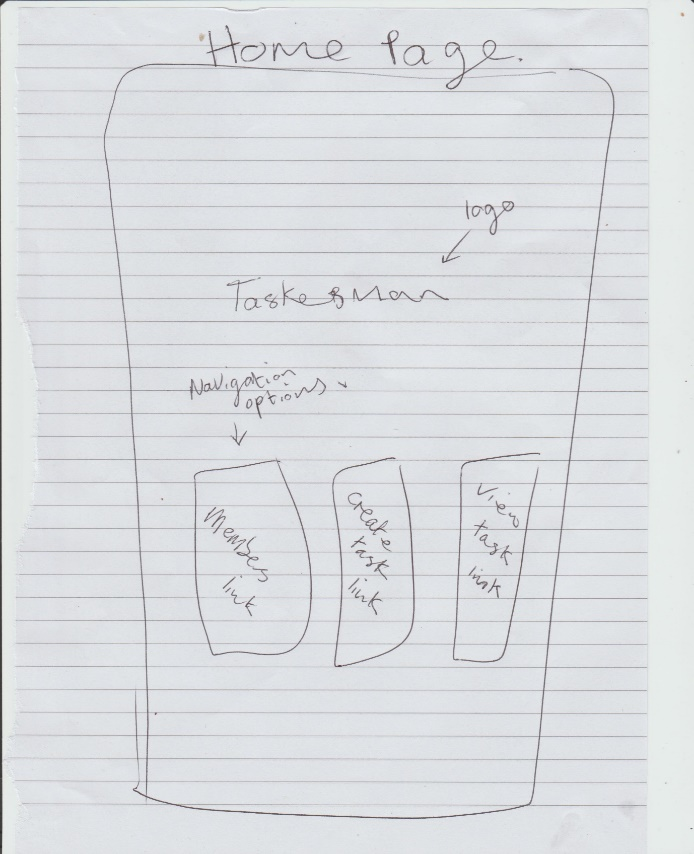 Home Page.
logo
Taskesman
Navigation
options
Members
link
Create
task
link
View
task
link